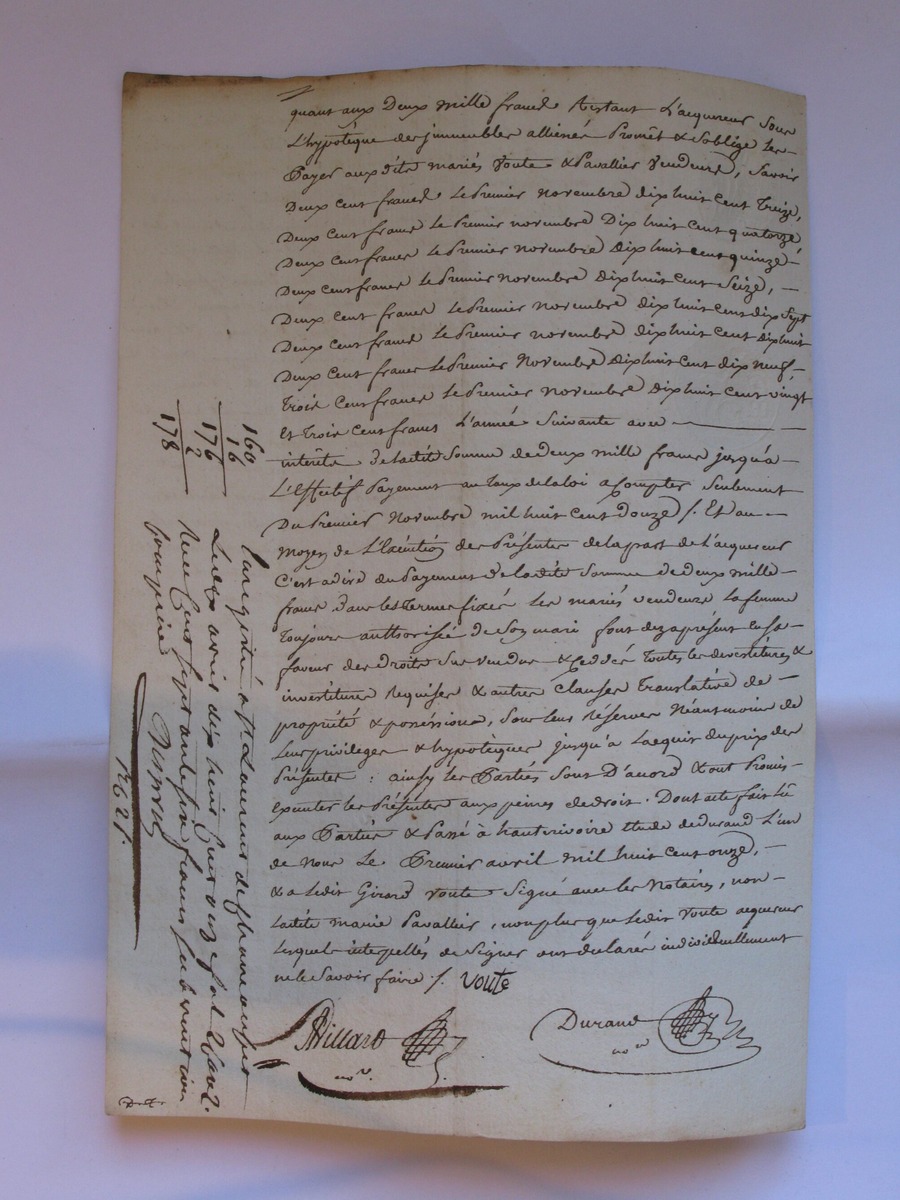 quant aux Deux mille francs Restant L'acquereur Sous
L'hypotèque des jmmeubles alliénés Promêt & S'oblige Les
Payer aux dits mariés Voute & Pavallier Vendeurs, Savoir
Deux cent francs Le Premier novembre dix huit cent Treize,
Deux cent francs Le Premier novembre Dix huit cent quatorze
Deux cent francs Le Premier Novembre Dix huit cent quinze
Deux cent francs Le Premier novembre dix huit cent Seize,
Deux cent francs Le Premier novembre dix huit cent dix Sept
Deux cent francs Le Premier novembre dix huit cent dix huit
Deux cent francs Le Premier Novembre Dix huit cent dix neuf
Trois cent francs Le Premier novembre dix huit cent vingt
Et Trois cent francs L'année Suivante avec
intérêts de ladite Somme de deux mille francs jusqu'a
L'Effectif Payement au Taux de la loi a Compter Seulement
Du Premier Novembre mil huit cent Douze /. Et au
moyen de L'Exécution des Présentes de la part de L'acquereur
C'est a dire du Payement de la dite Somme de deux mille
francs dans les Termes fixés Les mariés vendeurs La femme
Toujours authorisée de Son mari font dez a présent en Sa
faveur des droits Sus vendus & Ceddés Toutes les devestitures &
investitures Requises & autres Clauses Translatives de
propriété & possession, Sous leur Réserves Néantmoins de
Leurs privileges & hypotèques jusqu'a L'acquit du prix des
Présentes : ainsy les Parties Sont D'acord & ont Promis
executer les Présentes aux peines de droit. Dont acte fait Lû
aux Parties & Passé à hauterivoire Etude de durand L'un
de Nous Le Premier avril mil huit cent onze,
& a Ledit Girard Voute Signé avec les Notaires, non
Ladite marie Pavallier, non plus que Ledit Voute acquereur
Lesquels interpellés de Signer ont declarés individuellement
ne le Savoir faire /. Voute
Villard
no.re
Durand
no.re
160
16
176
2
178
Enregistré a St Laurent de Chamousset
Le dix avril dix huit cent onze fol.
Reçu Cent Soixante Seize francs Subvention
comprise